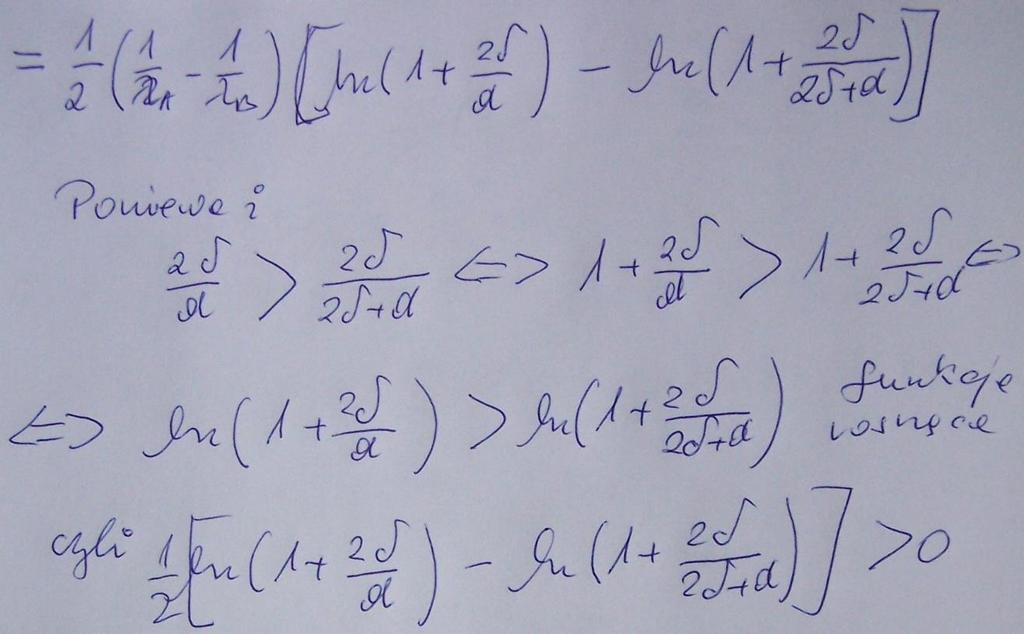 = 1/2 (1/λA - 1/λB) [ln(1 + 2δ/d) - ln(1 + 2δ/(2δ+d))]
Ponieważ
2δ/d > 2δ/(2δ+d) <=> 1 + 2δ/d > 1 + 2δ/(2δ+d) <=>
<=> ln(1 + 2δ/d) > ln(1 + 2δ/(2δ+d)) funkcje
rosnące
czyli 1/2 [ln(1 + 2δ/d) - ln(1 + 2δ/(2δ+d))] > 0